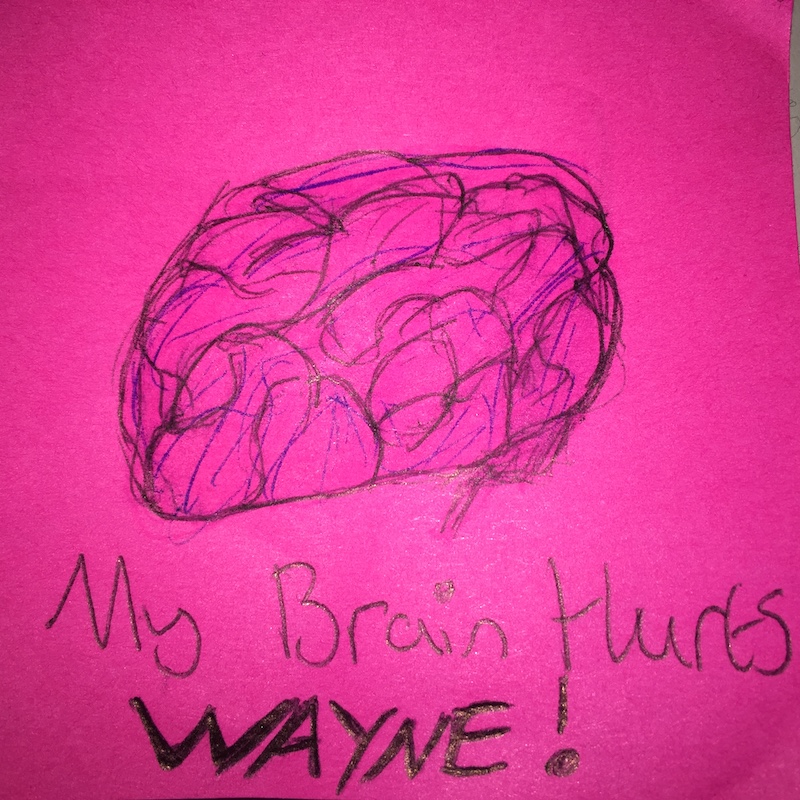 My Brain Hurts
WAYNE!